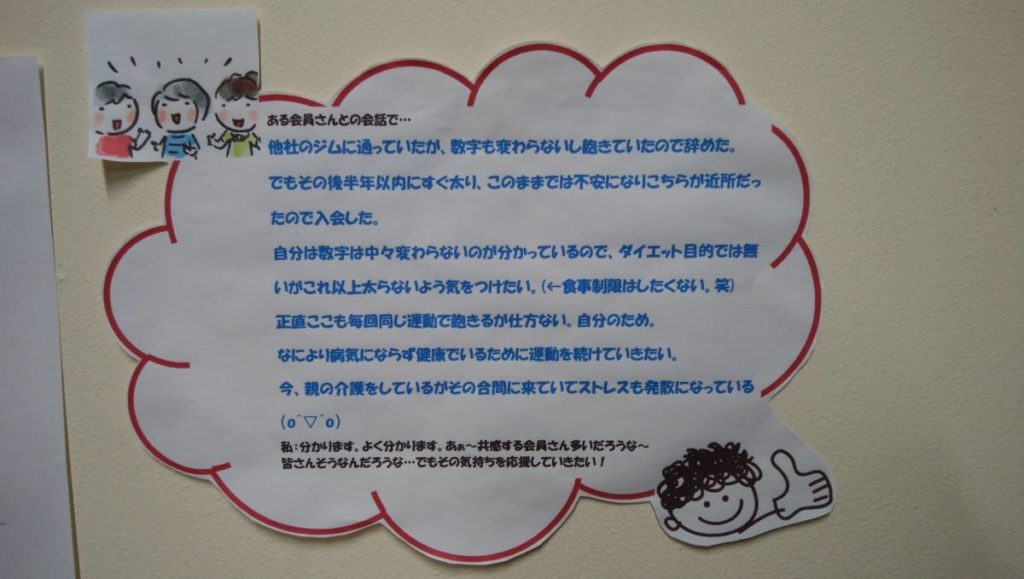 ある会員さんとの会話で…
他社のジムに通っていたが、数字も変わらないし飽きていたので辞めた。
でもその後半年以内にすぐ太り、このままでは不安になりこちらが近所だっ
たので入会した。
自分は数字は中々変わらないのが分かっているので、ダイエット目的では無
いがこれ以上太らないよう気をつけたい。(←食事制限はしたくない。笑)
正直ここも毎回同じ運動で飽きるが仕方ない。自分のため。
なにより病気にならず健康でいるために運動を続けていきたい。
今、親の介護をしているがその合間に来ていてストレスも発散になっている
(o^▽^o)
私:分かります。よく分かります。あぁ～共感する会員さん多いだろうな～
皆さんそうなんだろうな…でもその気持ちを応援していきたい！